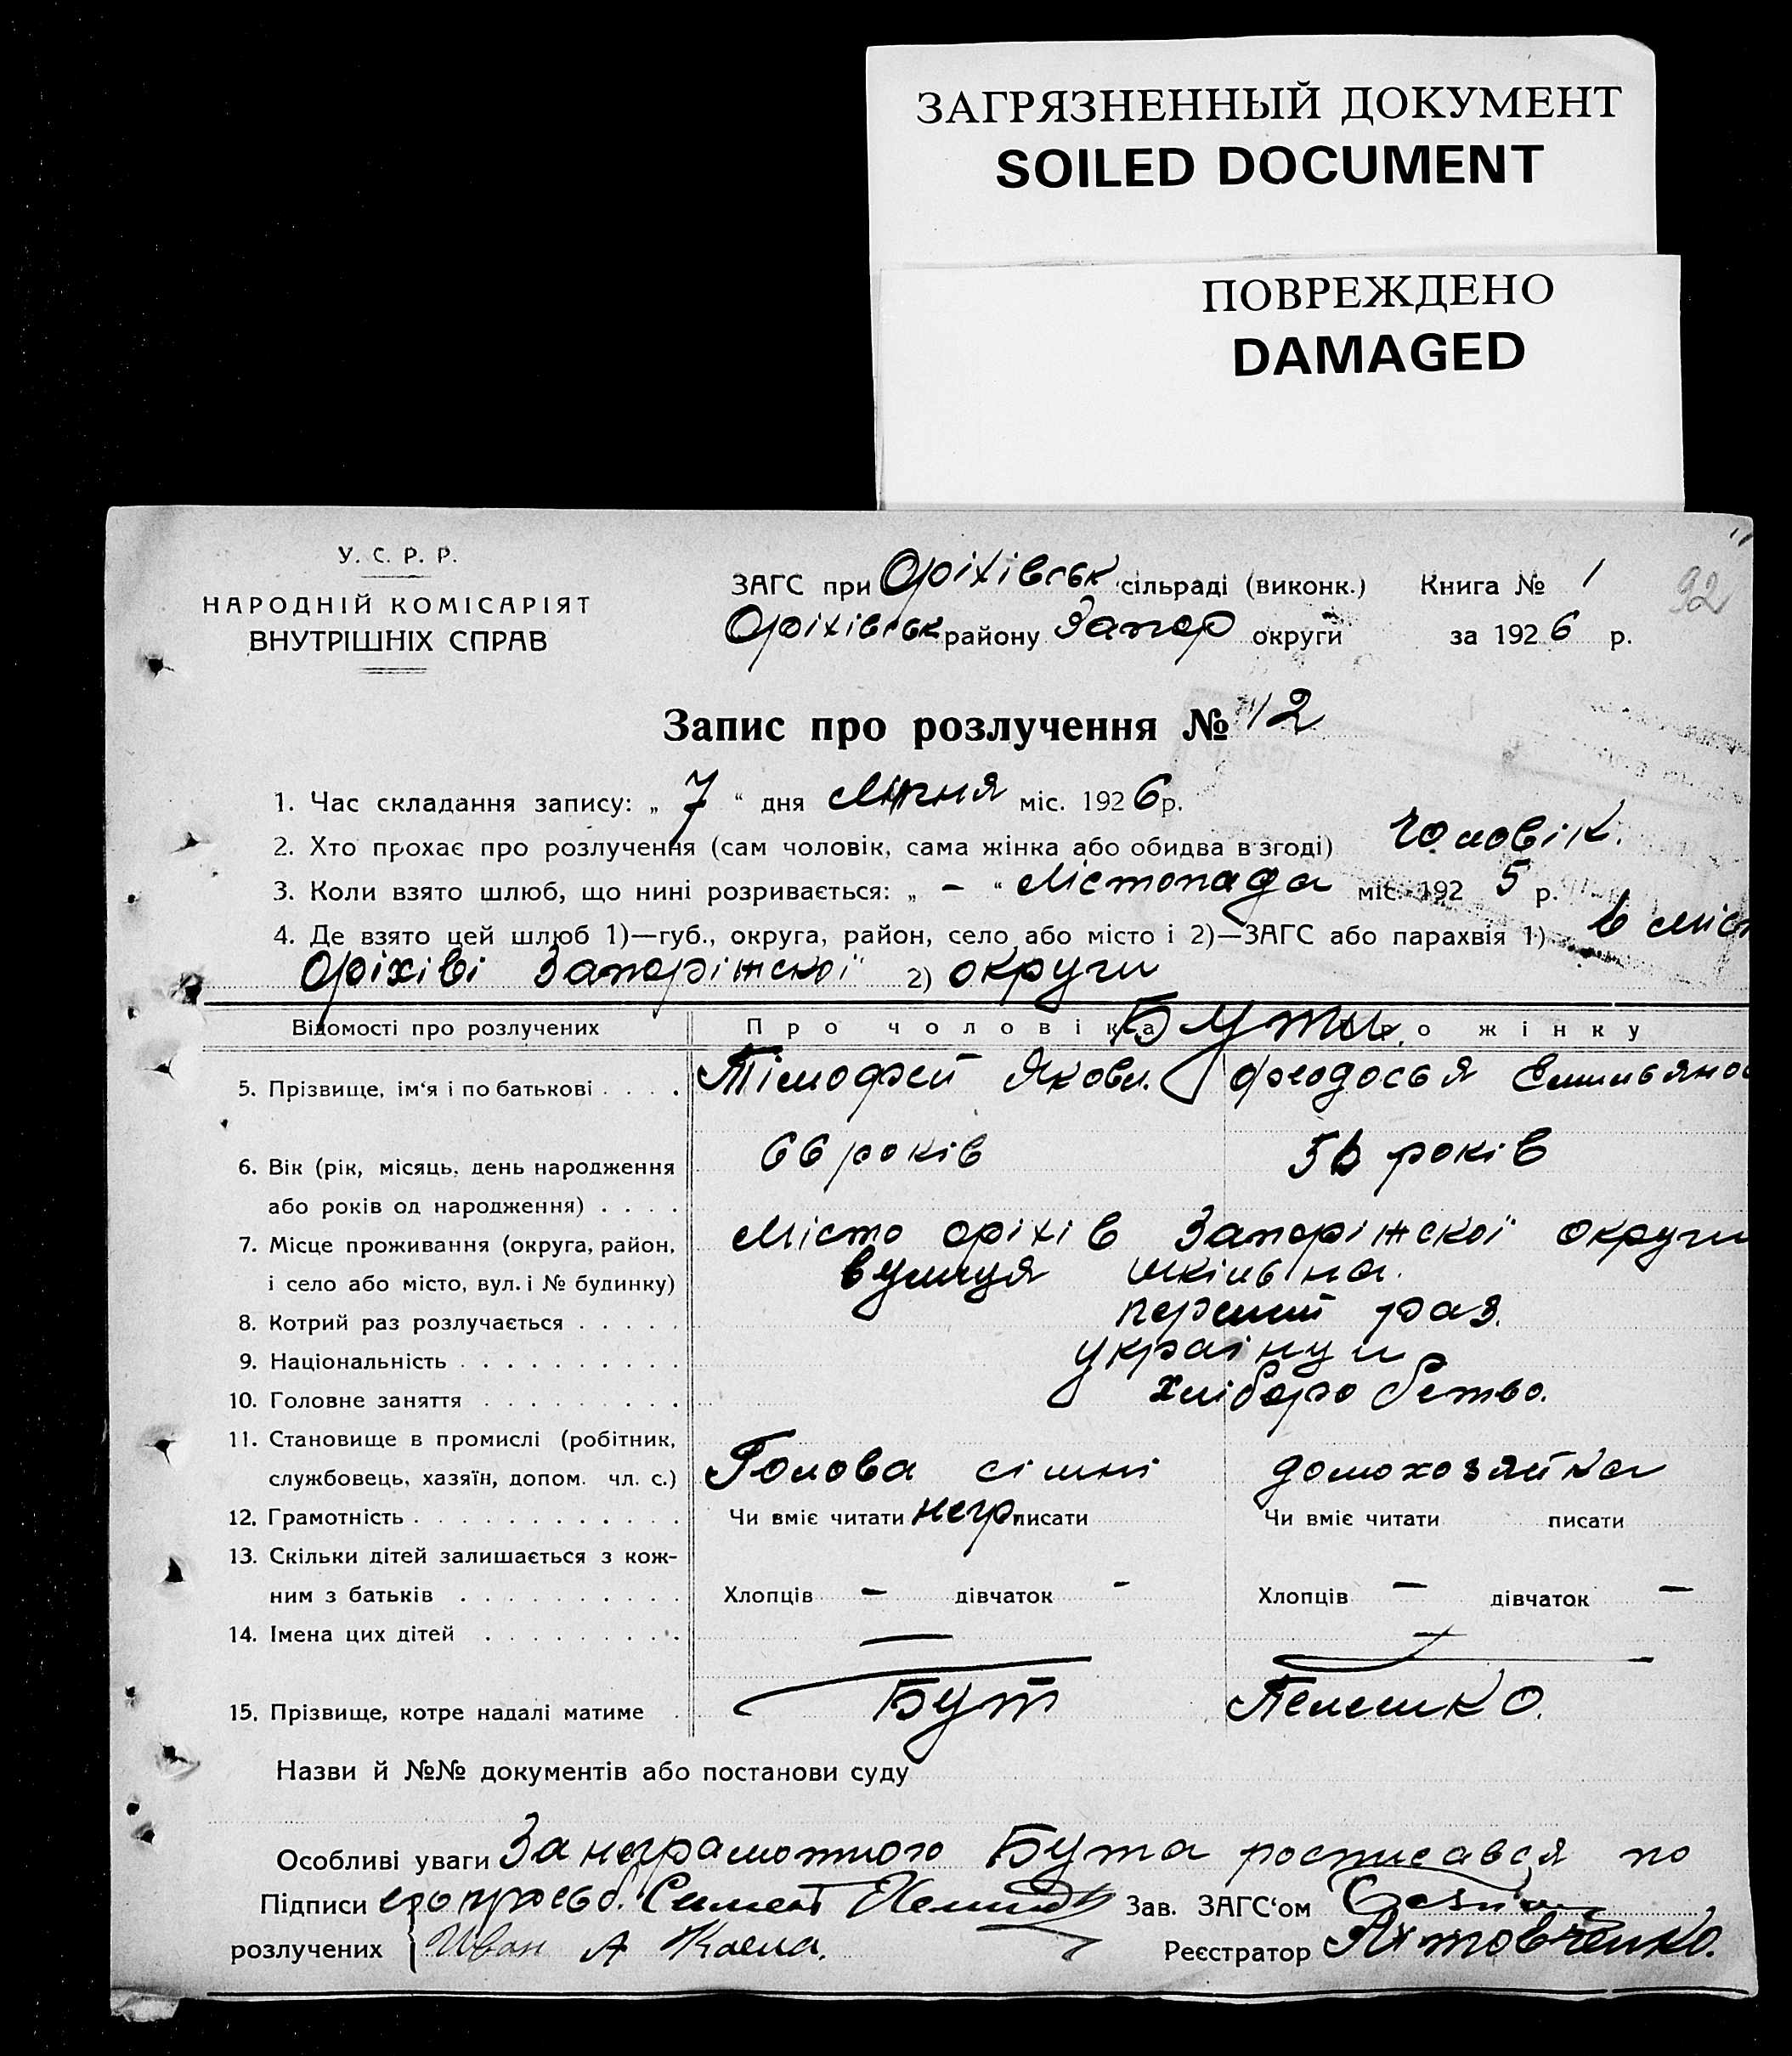 ЗАГРЯЗНЕННЫЙ ДОКУМЕНТ
SOILED DOCUMENT
ПОВРЕЖДЕНО
DAMAGED
У. С. Р. Р.
НАРОДНІЙ КОМІСАРІЯТ
ВНУТРІШНІХ СПРАВ
ЗАГС при Оріхівськ сільраді (виконк.) Книга № 1
92
Оріхівськ району Запор округи за 1926 р.
Запис про розлучення № 12
1. Час складання запису: „ 7 “ дня Липня міс. 1926 р.
2. Хто прохає про розлучення (сам чоловік, сама жінка або обидва в згоді) Чоловік.
3. Коли взято шлюб, що нині розривається: „ – “ Лістопада міс. 1925 р.
4. Де взято цей шлюб 1)—губ., округа, район, село або місто і 2)—ЗАГС або парахвія 1) в міс
Оріхіві Запоріжскої 2) округи
Відомості про розлучених Про чоловіка Про жінку
Бути.
5. Прізвище, ім‘я і по батькові Тімофей Яковл. Феодосья Емильянов
6. Вік (рік, місяць, день народження 66 років 56 років
або років од народження)
7. Місце проживання (округа, район, Місто оріхів Запоріжскої округи
і село або місто, вул. і № будинку) вулиця шкільна.
8. Котрий раз розлучається перший раз.
9. Національність українци
10. Головне заняття хліборобство.
11. Становище в промислі (робітник,
службовець, хазяїн, допом. чл. с.) Голова сімні домохозяйка
12. Грамотність Чи вміє читати негр. писати Чи вміє читати писати
13. Скільки дітей залишається з кож-
ним з батьків Хлопців – дівчаток – Хлопців – дівчаток –
14. Імена цих дітей — —
15. Прізвище, котре надалі матиме Бут Телешко.
Назви й №№ документів або постанови суду
Особливі уваги За неграмотного Бута росписався по
Підписи его просьб. Симеон Зав. ЗАГС‘ом
розлучених Иван А Реєстратор